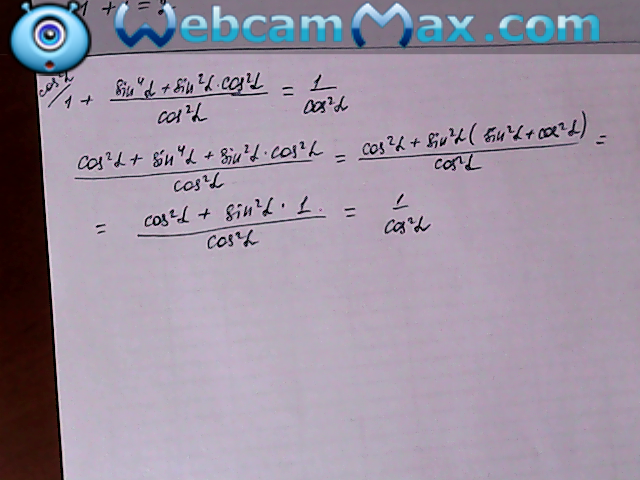 1 + 1 = 2
WebcamMax.com
cos²α/ 1 + (sin⁴α + sin²α · cos²α)/cos²α = 1/cos²α
(cos²α + sin⁴α + sin²α · cos²α)/cos²α = (cos²α + sin²α (sin²α + cos²α))/cos²α =
= (cos²α + sin²α · 1)/cos²α = 1/cos²α